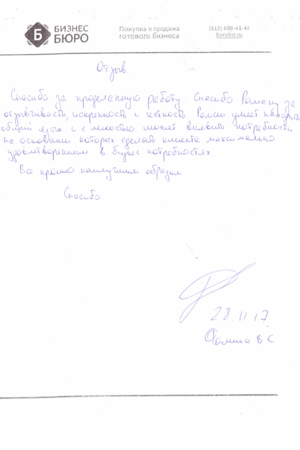 БИЗНЕС
БЮРО
Покупка и продажа
готового бизнеса
Отзыв
Спасибо за проделанную работу. Спасибо Роману за
отзывчивость, искренность и честность. Роман умеет находить
общий язык и с легкостью может выявить потребности
на основании которых сделать клиента максимально
удовлетворенным в бизнес потребностях
Все прошло наилучшим образом
Спасибо
28.11.17
В С